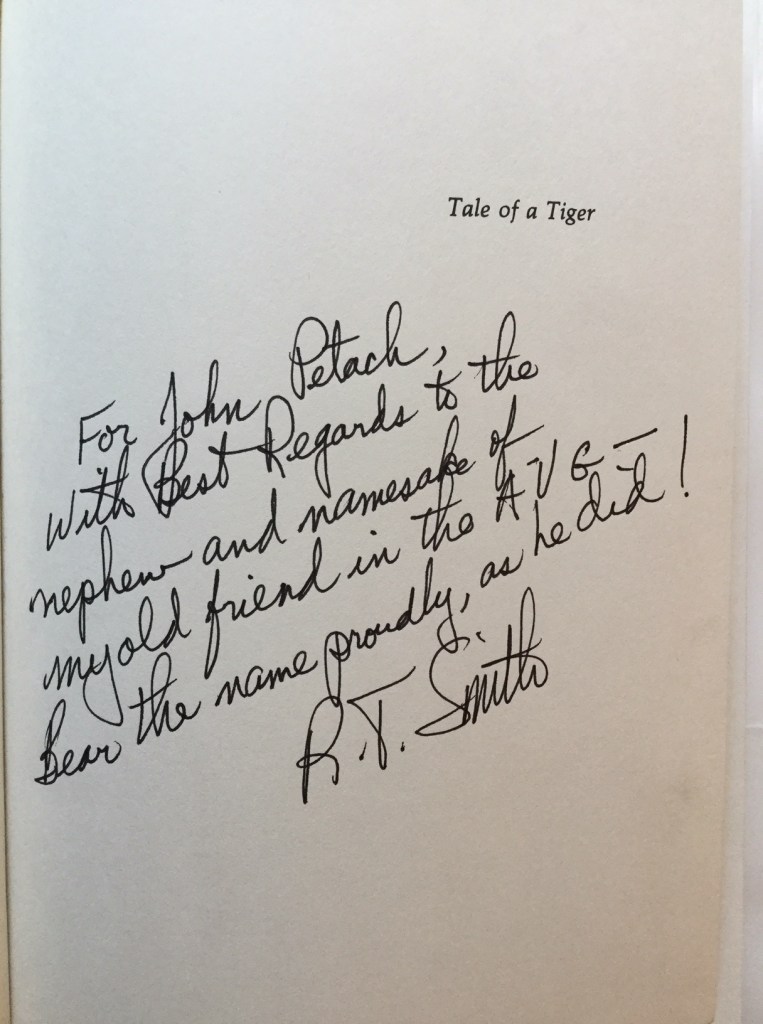 Tale of a Tiger
For John Petach,
With Best Regards to the
nephew and namesake of
my old friend in the AVG —
Bear the name proudly, as he did!
R.T. Smith